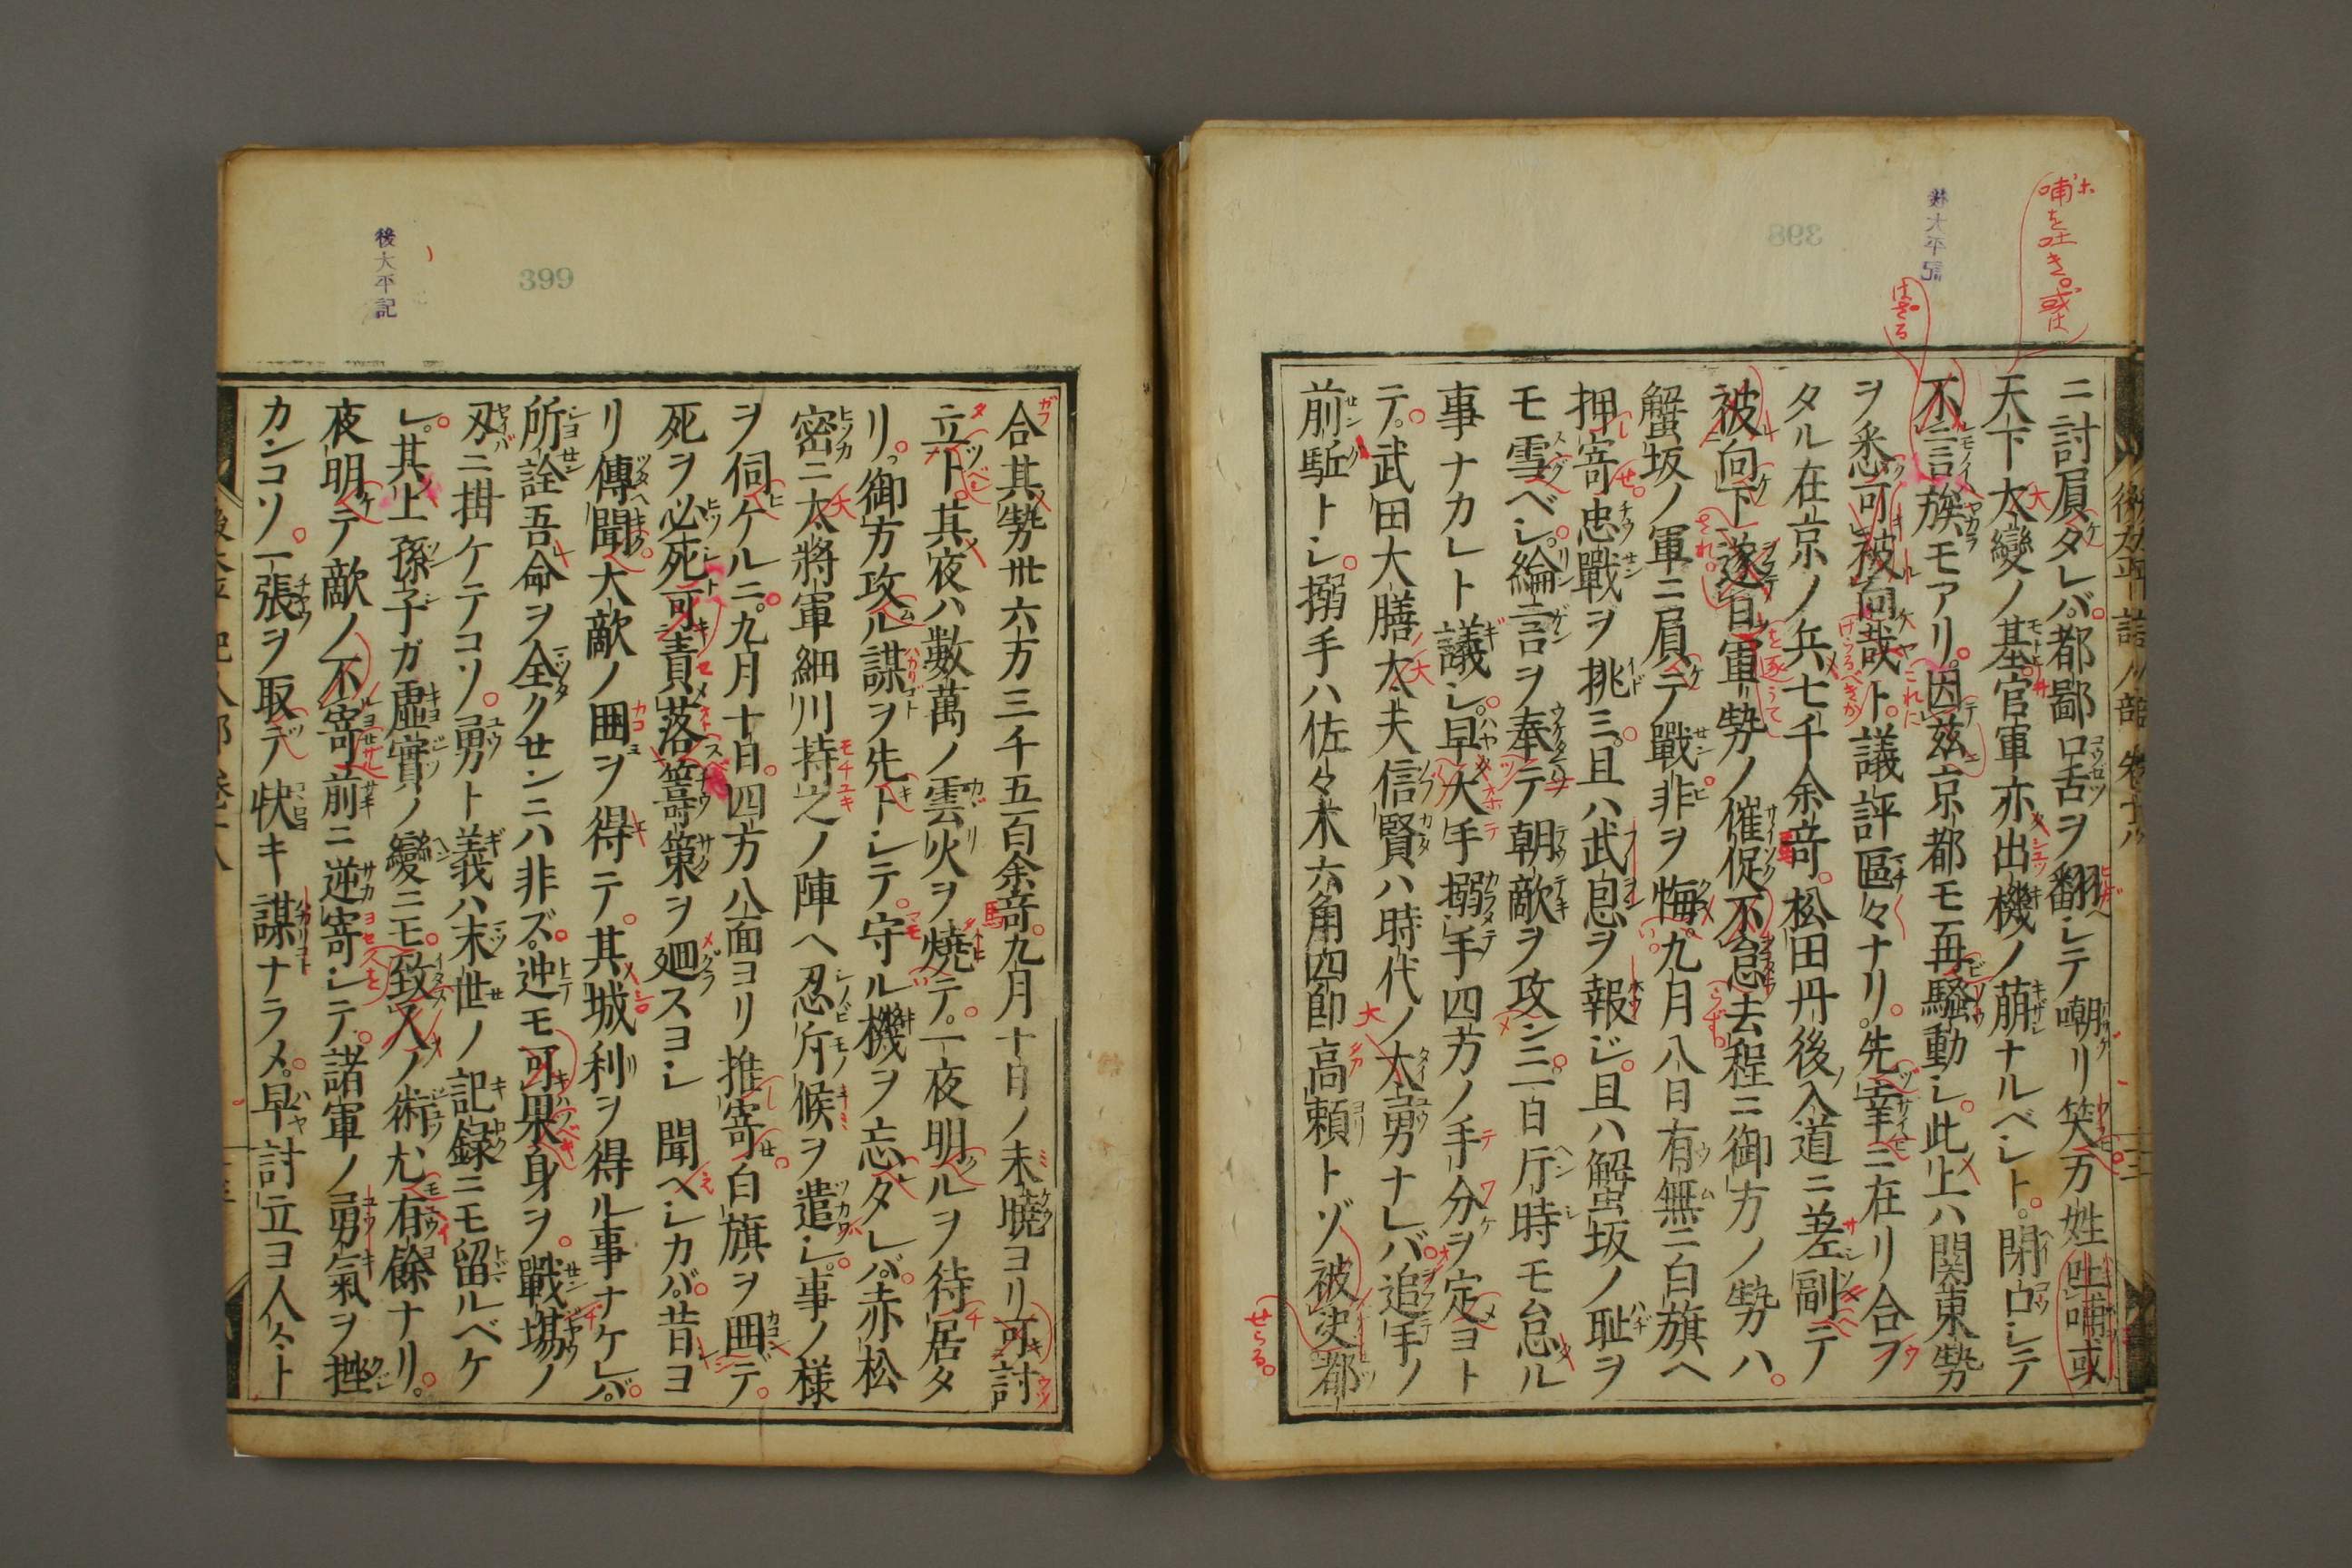 哺ホを吐き。或は
後太平記
398
ばざる
ニ討負タレバ都鄙口舌ヲ翻シテ嘲リ笑万姓吐哺或
天下大變ノ基官軍亦出機ノ萠ナルベシト。閉口シテ
不言族モアリ。因茲京都モ再騒動シ此上ハ関東勢
ヲ悉可被向哉ト。議評區々ナリ。先幸ニ在リ合フ
タル在京ノ兵七千余竒。松田丹後入道ニ差副テ
被向下。逐日軍勢ノ催促不怠去程ニ御方ノ勢ハ
蟹坂ノ軍ニ負テ戰非ヲ悔。九月八日有無ニ白旗ヘ
押寄忠戰ヲ挑ミ。且ハ武恩ヲ報ジ。且ハ蟹坂ノ耻ヲ
モ雪ベシ。綸言ヲ奉テ朝敵ヲ攻ンニ一日片時モ怠ル
事ナカレト議シ。早大手搦手四方ノ手分ヲ定ヨト
テ。武田大膳太夫信賢ハ時代ノ大勇ナレバ追手ノ
前駈トシ。搦手ハ佐々木六角四郎高頼トゾ被定都
せらる。
後太平記
399
合其勢丗六万三千五百余竒。九月十日ノ未曉ヨリ可討
立ト。其夜ハ數萬ノ雲火ヲ燒テ。一夜明ルヲ待居タ
リ。御方攻ル謀ヲ先トシテ。守ル機ヲ忘タレバ。赤松
密ニ大將軍細川持之ノ陣ヘ忍斥候ヲ遣シ。事ノ様
ヲ伺ケルニ。九月十日。四方八面ヨリ推寄。白旗ヲ囲テ。
死ヲ必死可責落籌策ヲ廻スヨシ聞ヘシカバ。昔ヨ
リ傳聞大敵ノ囲ヲ得テ。其城利ヲ得ル事ナケレバ。
所詮吾命ヲ全クセンニハ非ズ。迚モ可果身ヲ。戰場ノ
刃ニ掛ケテコソ。勇ト義ハ末世ノ記録ニモ留ルベケ
レ。其上孫子ガ虚實ノ變ニモ。致人ノ術尤有餘ナリ。
夜明テ敵ノ不寄前ニ逆寄シテ。諸軍ノ勇氣ヲ挫
カンコソ。一張ヲ取テ快キ謀ナラメ。早討立ヨ人々ト